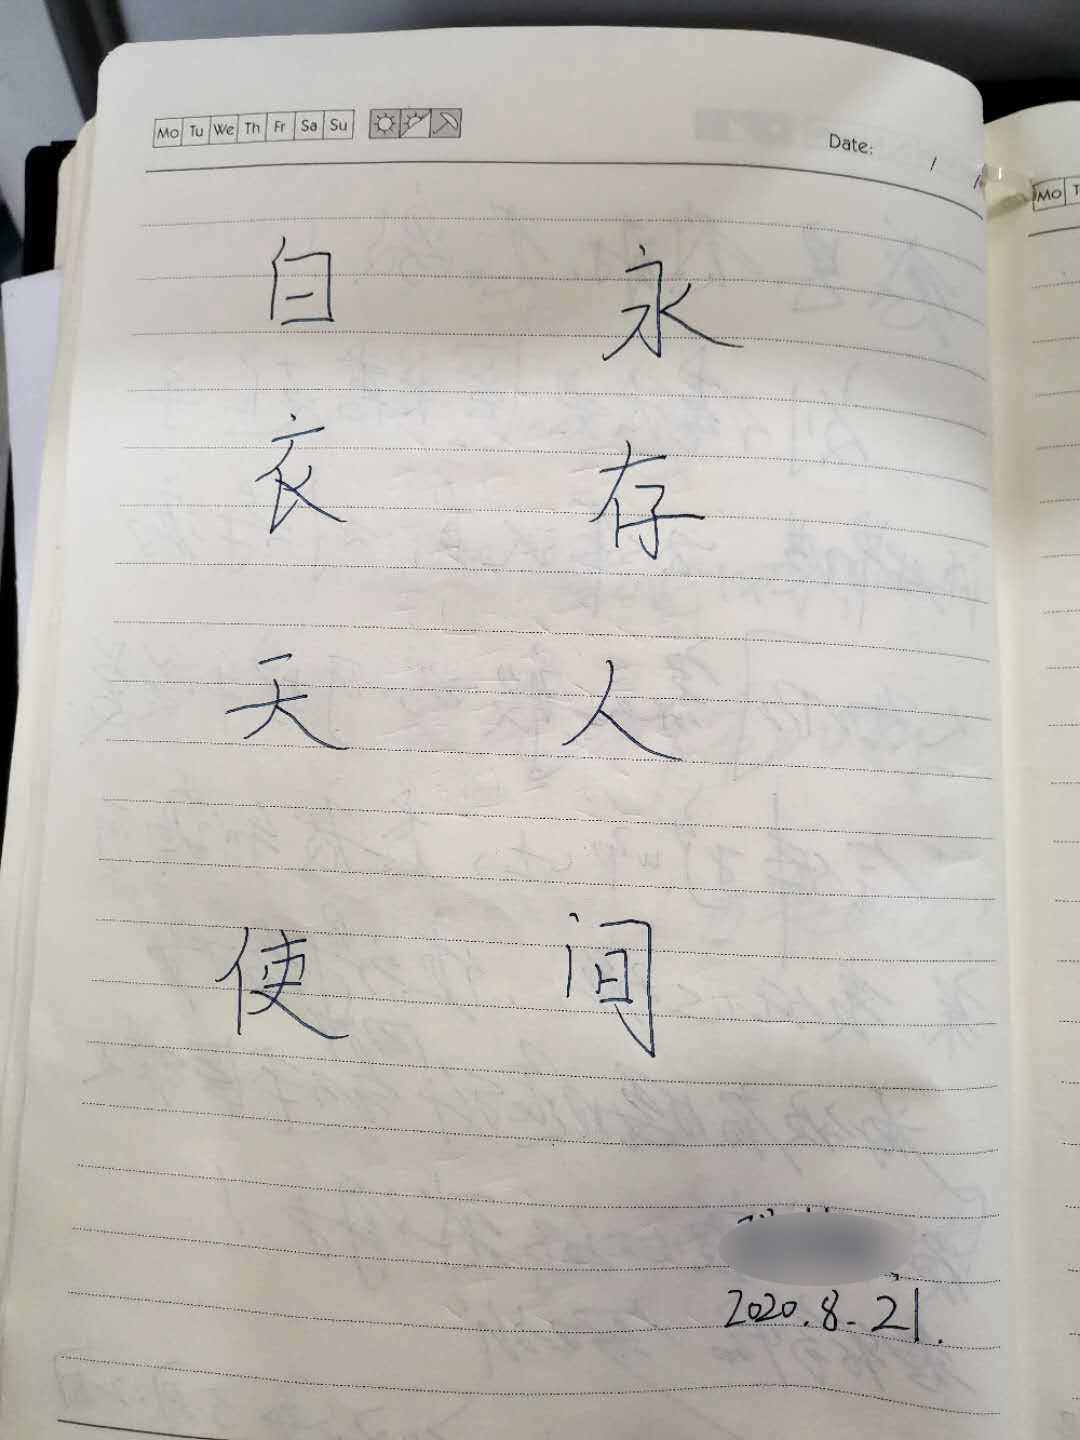 Mo Tu We Th Fr Sa Su
Date: / /
Mo T
白 永
衣 存
天 人
使 间
2020.8.21.